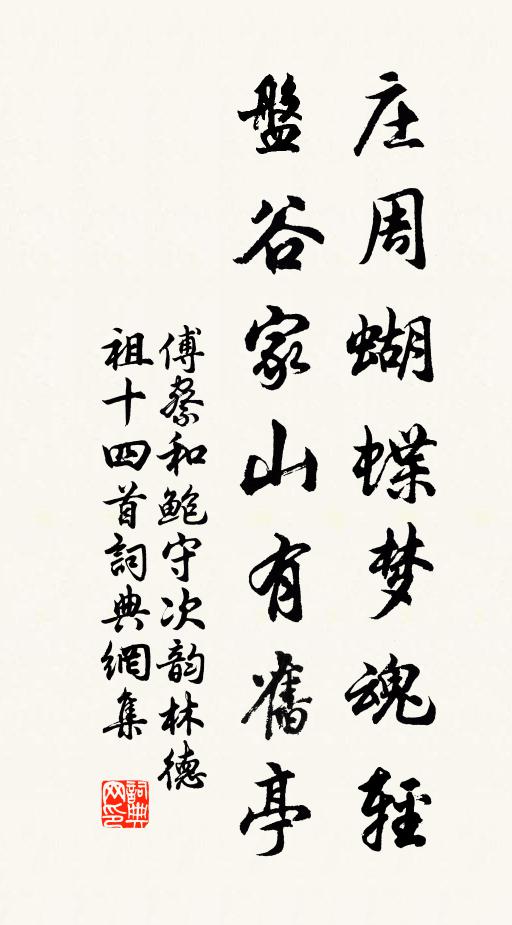 庄周蝴蝶梦魂輕
盤谷家山有舊亭
傅察和鲍守次韵林德
祖十四首詞典網集
詞典网印